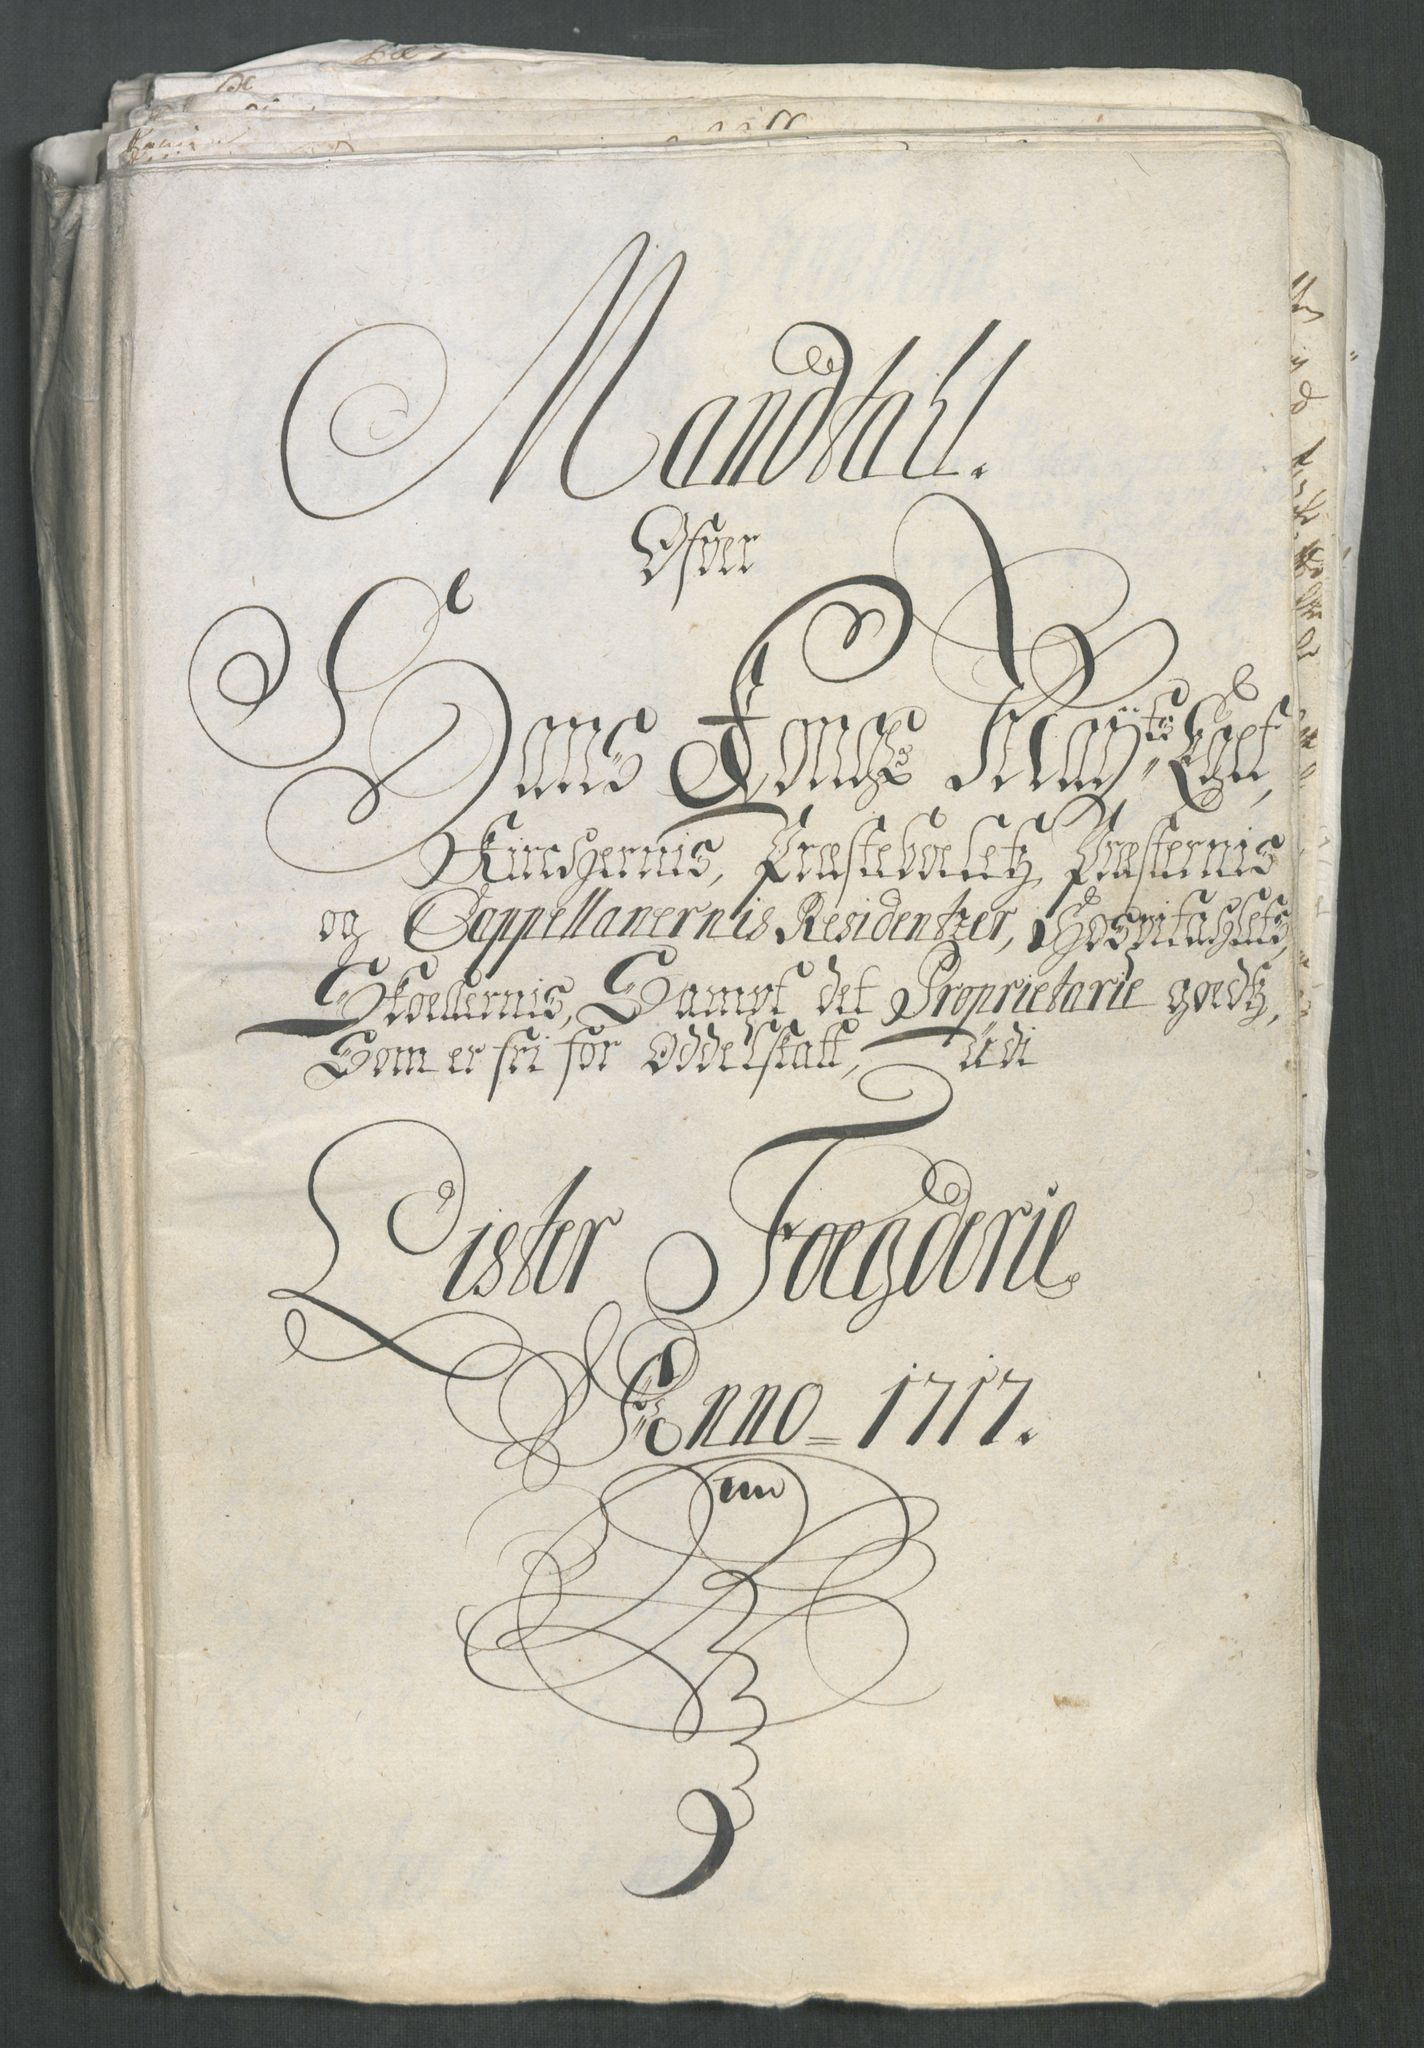 Mandtahl.
Ofver
Hans Kongl: Mayts
Kirchernis, Præsteboeletz, Præsternis
og Cappellanernis Residentzer, Hospitahletz,
Skoellernis, Sampt det Proprietarie goedtz,
Som er fri for Oddelskatt, Udi
Lister Foegderie
Anno = 1717.